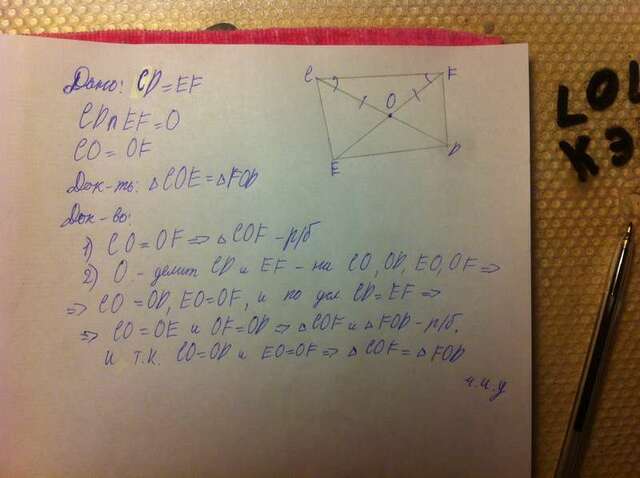 Дано: CD = EF
CD∩EF = O
CO = OF
Док-ть: △COE = △FOD
Док-во:
1) CO = OF ⇒ △COF - р/б
2) O - делит CD и EF - на CO, OD, EO, OF ⇒
⇒ CO = OD, EO = OF, и по усл CD = EF ⇒
⇒ CO = OE и OF = OD ⇒ △COF и △FOD - р/б.
и т.к. CO = OD и EO = OF ⇒ △COF = △FOD
ч.и.д
C F
O
E D
LOL
КЭ